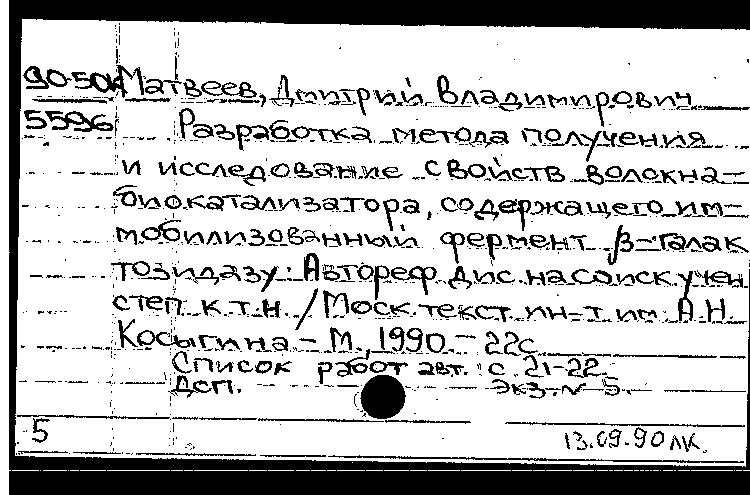 90-50к Матвеев, Дмитрий Владимирович
5596 Разработка метода получения
и исследование свойств волокна-
биокатализатора, содержащего им-
мобилизованный фермент β-галак
тозидазу: Автореф. дис. на соиск. учен
степ. к.т.н. / Моск. текст. ин-т им. А.Н.
Косыгина – М., 1990. – 22с
Список работ авт.: с. 21-22.
Дсп. Экз. № 5.
5 13.09.90 лк.